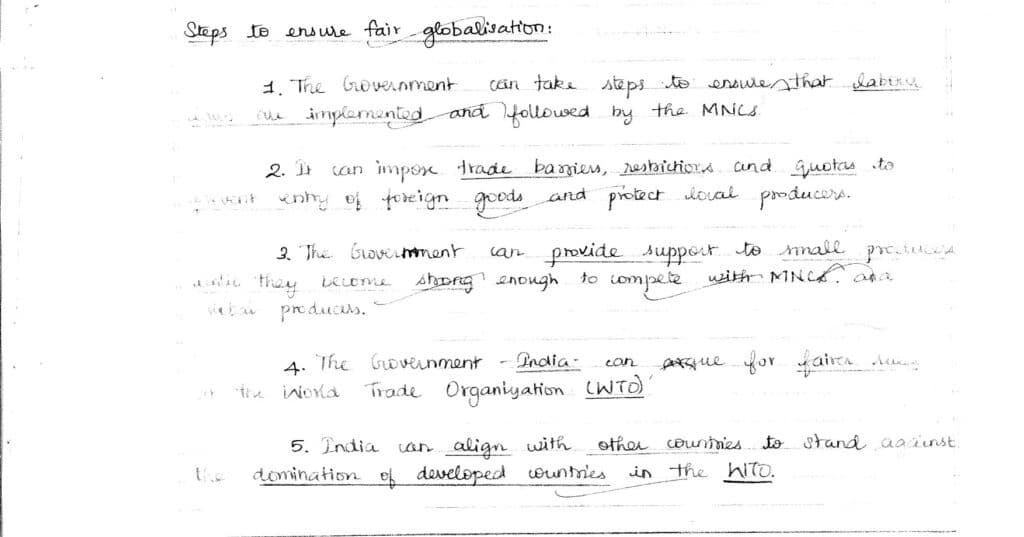 Steps to ensure fair globalisation:
1. The Government can take steps to ensure that labour
are implemented and followed by the MNCs
2. It can impose trade barriers, restrictions and quotas to
prevent entry of foreign goods and protect local producers.
3. The Government can provide support to small producers
until they become strong enough to compete with MNCs. and
producers.
4. The Government - India - can argue for fairer rules
at the World Trade Organiyation (WTO)
5. India can align with other countries to stand against
the domination of developed countries in the WTO.